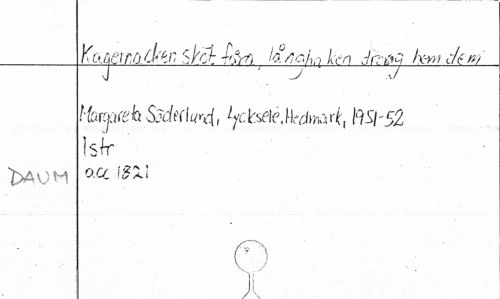 Kagernacken sköt faren, långhaken dreng hem dem
Margareta Söderlund, Lycksele, Hedmark, 1951-52
1 str
DAUM acc 1821